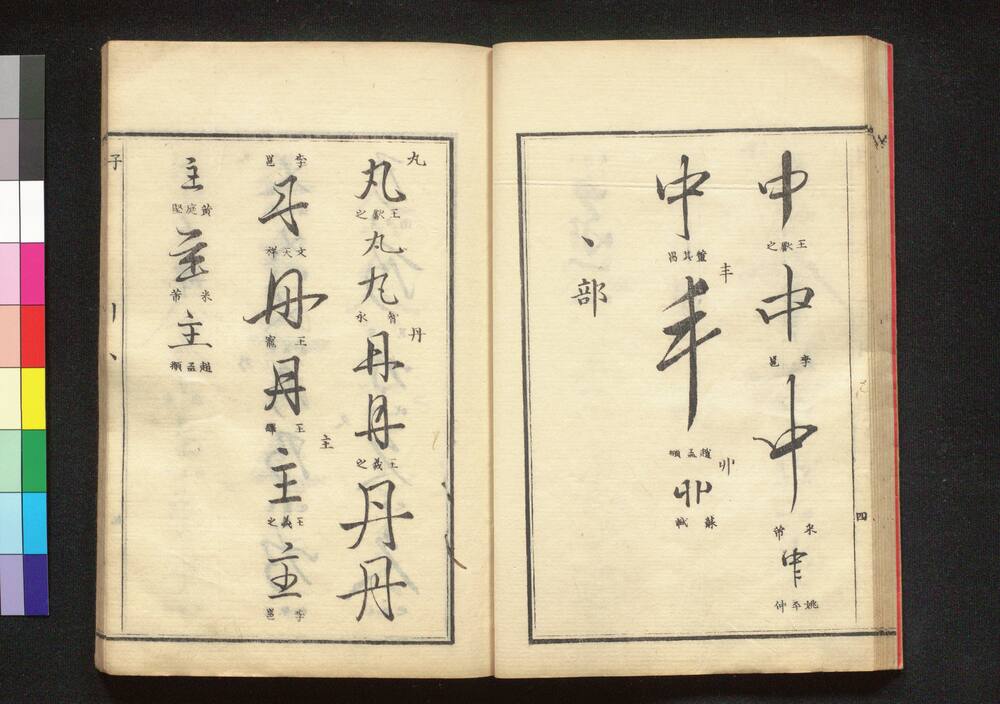 四
中
王獻之
中
李邕
中
米芾
中
姚平仲
中
董其昌
丰
丰
趙孟頫
丱
丱
蘇軾
丶部
丸
丸
王獻之
丸
丸
智永
丹
丹
丹
王羲之
丹
丹
李邕
丹
文天祥
丹
王寵
丹
王鐸
主
主
王羲之
主
李邕
主
黃庭堅
主
米芾
主
趙孟頫
子
丨
丶